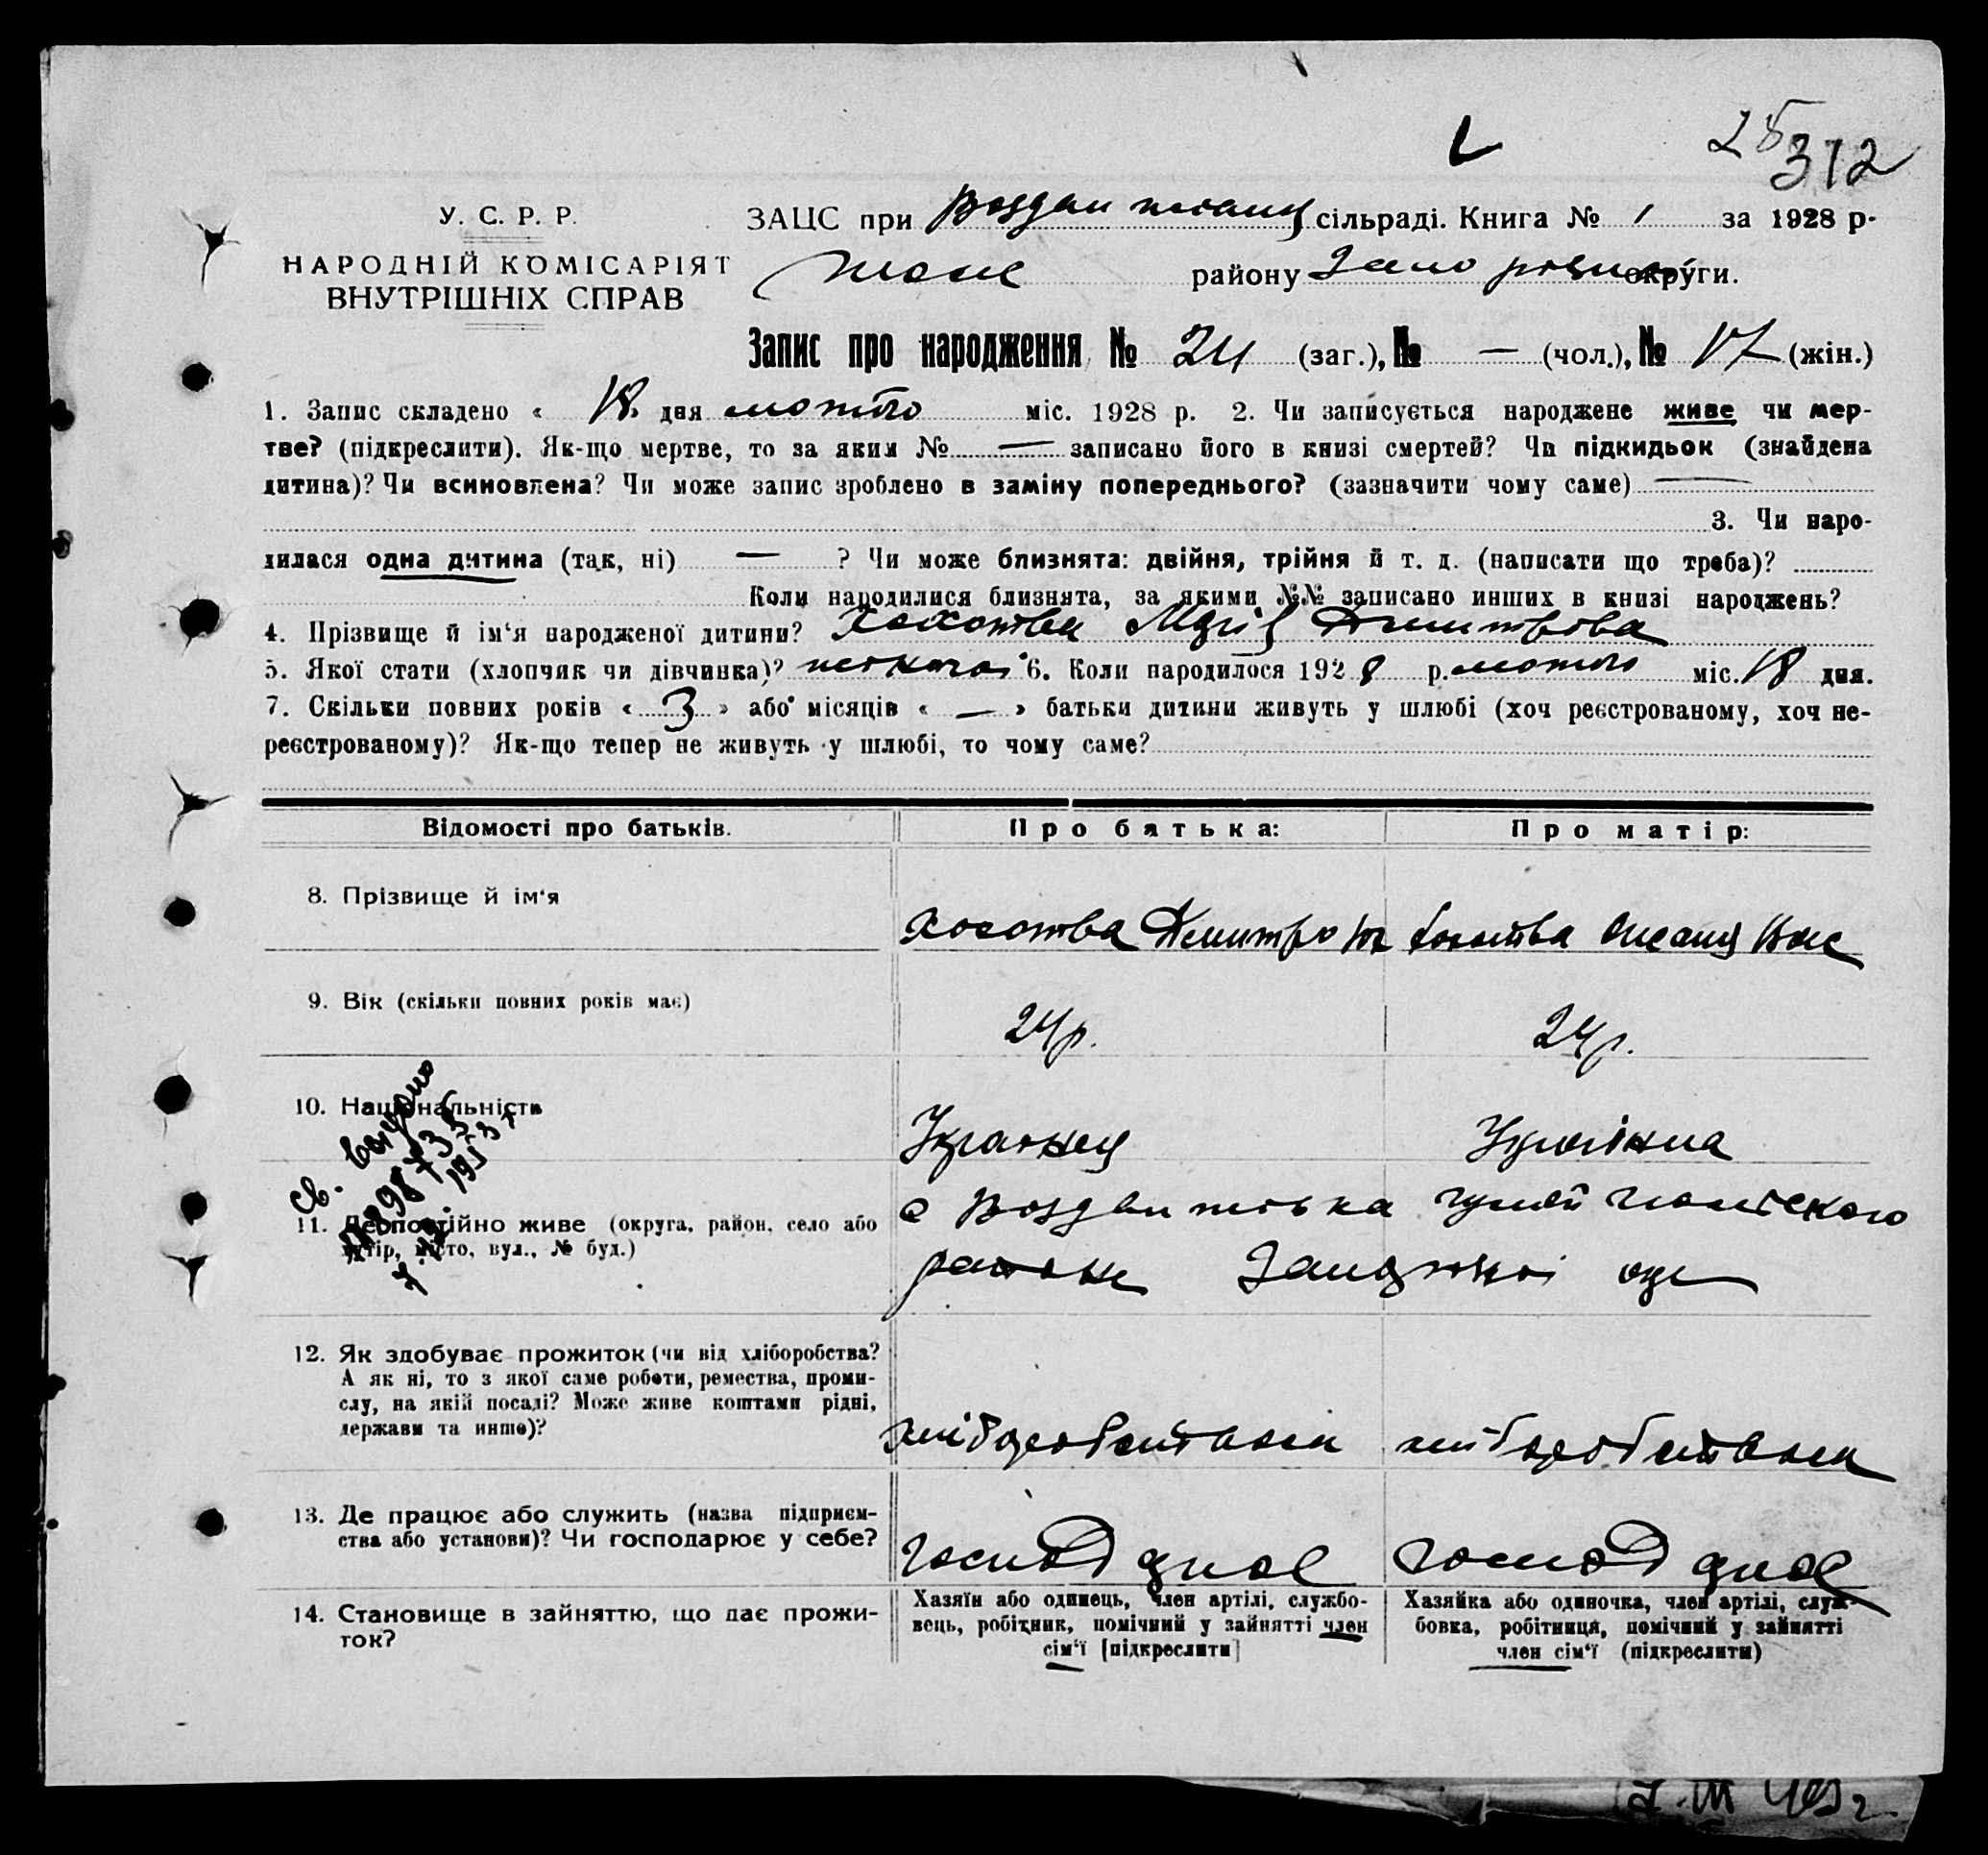 25
312
У. С. Р. Р.
НАРОДНІЙ КОМІСАРІЯТ
ВНУТРІШНІХ СПРАВ
ЗАЦС при сільраді. Книга № 1 за 1928 р.
району округи.
Запис про народження № 24 (заг.), № — (чол.), № 17 (жін.)
1. Запис складено « 18 » дня лютого міс. 1928 р. 2. Чи записується народжене живе чи мер-
тве? (підкреслити). Як-що мертве, то за яким № — записано його в книзі смертей? Чи підкидьок (знайдена
дитина)? Чи всиновлена? Чи може запис зроблено в заміну попереднього? (зазначити чому саме) —
3. Чи наро-
дилася одна дитина (так, ні) — ? Чи може близнята: двійня, трійня й т. д. (написати що треба)?
Коли народилися близнята, за якими №№ записано инших в книзі народжень?
4. Прізвище й ім‘я народженої дитини? Дмитрова
5. Якої стати (хлопчик чи дівчинка)? 6. Коли народилося 1928 р. лютого міс. 18 дня.
7. Скільки повних років « 3 » або місяців « — » батьки дитини живуть у шлюбі (хоч реєстрованому, хоч не-
реєстрованому)? Як-що тепер не живуть у шлюбі, то чому саме?
Відомості про батьків.
Про батька:
Про матір:
8. Прізвище й ім‘я
Хохотва Дмитро Хохотва
9. Вік (скільки повних років має)
24р.
24р.
10. Національність
Українец
Українка
11. Де постійно живе (округа, район, село або
хутір, місто, вул., № буд.)
с Воздвиженка
району
12. Як здобуває прожиток (чи від хліборобства?
А як ні, то з якої саме роботи, ремества, проми-
слу, на якій посаді? Може живе коштами рідні,
держави та инше)?
хліборобством
хліборобством
13. Де працює або служить (назва підприєм-
ства або установи)? Чи господарює у себе?
14. Становище в зайняттю, що дає прожи-
ток?
Хазяїн або одинець, член артілі, службо-
вець, робітник, помічний у зайнятті член
сім‘ї [підкреслити]
Хазяйка або одиночка, член артілі, служ-
бовка, робітниця, помічний у зайнятті
член сім‘ї (підкреслити)